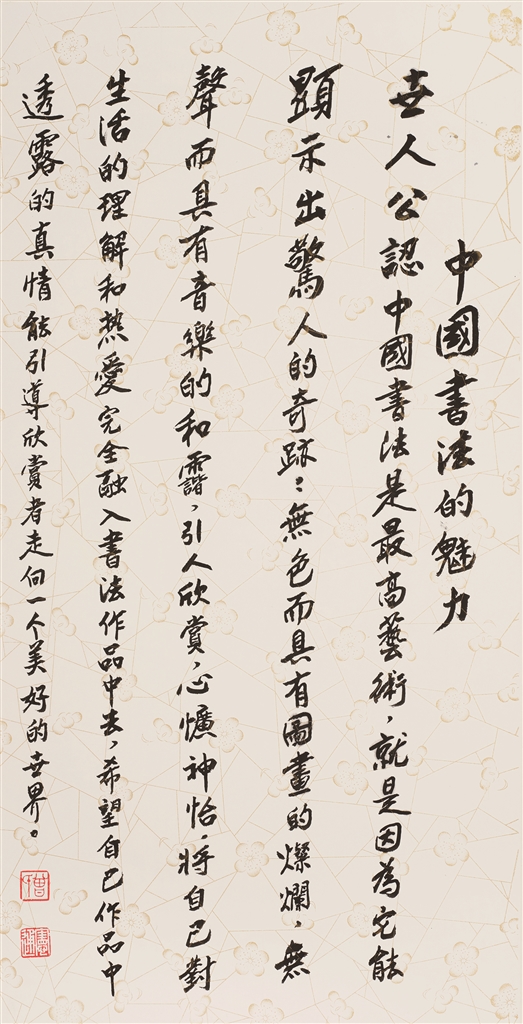 中國書法的魅力
世人公認中國書法是最高藝術，就是因為它能
顯示出驚人的奇跡：無色而具有圖畫的燦爛，無
聲而具有音樂的和諧，引人欣賞，心懭神怡。將自己對
生活的理解和热愛完全融入書法作品中去，希望自己作品中
透露的真情能引導欣賞者走向一个美好的世界。